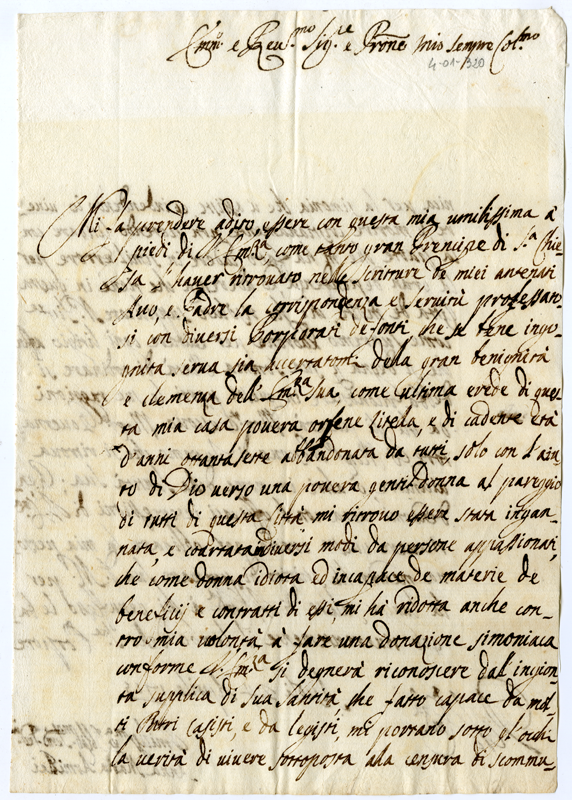 Em.mo e Reu.mo Sig.re e Prone mio sempre Col.mo
4-01-320
Mi fa prendere adito, essere con questa mia umilissima à
i piedi di V. Em.za, come tanto gran Prencipe di S.ta Chie-
sa l'hauer ritrouato nelle scritture de miei antenati
Auo, e Padre la corrispondenza e seruitù professata
si con diuersi Porporati defonti, che se bene inco-
gnita serua sia accertatom.e della gran benignità
e clemenza dell' Em.za Sua, come ultima erede di ques-
ta mia casa pouera orfene Zitela, e di cadente età
d'anni ottantasette abbandonata da tutti, solo con l'aiu-
to di Dio uerso una pouera gentildonna al pareggio
di tutti di questa Città mi ritrouo essere stata ingan-
nata, e coartata in diuersi modi da persone appassionati,
che come donna idiota ed incapace de materie de
beneficij e contratti di essi, mi hà ridotta anche con-
tro mia uolontà à fare una donazione simoniaca
conforme V. Em.za si degnerà riconoscere dall' ingion-
ta supplica di Sua Santità che fatto capace da mol-
ti Dottori Casisti, e da legisti, mi portano sotto gl'occhi
la uerità di uiuere sottoposta alla censura di scommu-